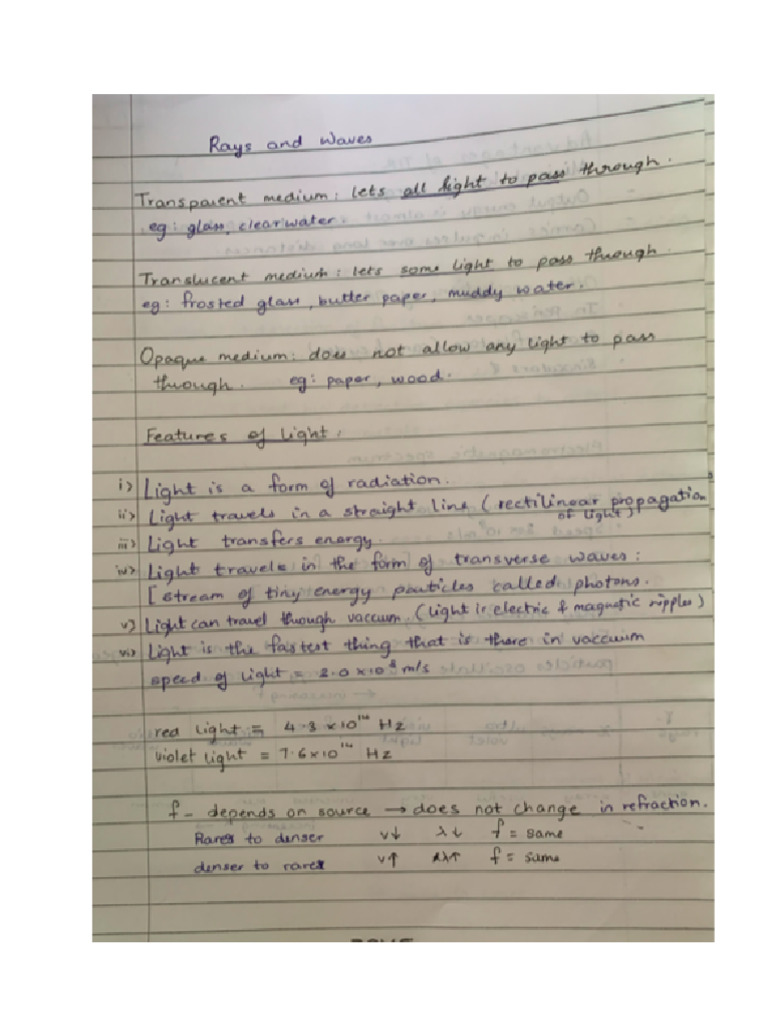 Rays and waves
Transparent medium: lets all light to pass through.
eg: glass, clearwater.
Translucent medium: lets some light to pass through.
eg: frosted glass, butter paper, muddy water.
Opaque medium: does not allow any light to pass
through. eg: paper, wood.
Features of light.
i) Light is a form of radiation.
ii) Light travels in a straight line (rectilinear propagation
of light)
iii) Light transfers energy.
iv) Light travels in the form of transverse waves:
[stream of tiny energy particles called photons.
v) Light can travel through vaccum. (light is electric & magnetic ripples)
vi) Light is the fastest thing that is there in vaccuum
speed of light = 3.0 x 10⁸ m/s
red light = 4.3 x 10¹⁴ Hz
violet light = 7.6 x 10¹⁴ Hz
f - depends on source → does not change in refraction.
Rarer to denser v↓ λ↓ f = same
denser to rarer v↑ λ↑ f = same